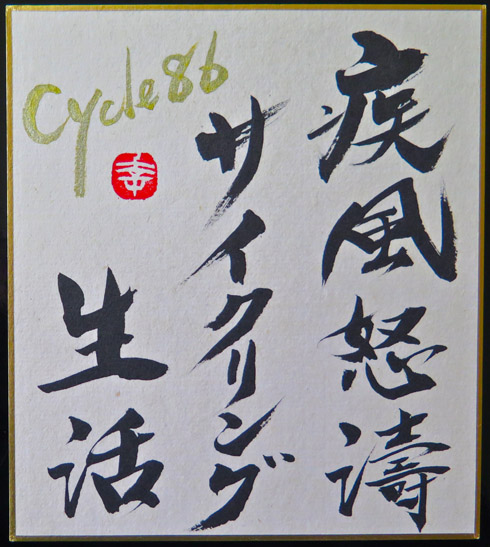 疾風怒濤
サイクリング
生活
Cycle86
幸